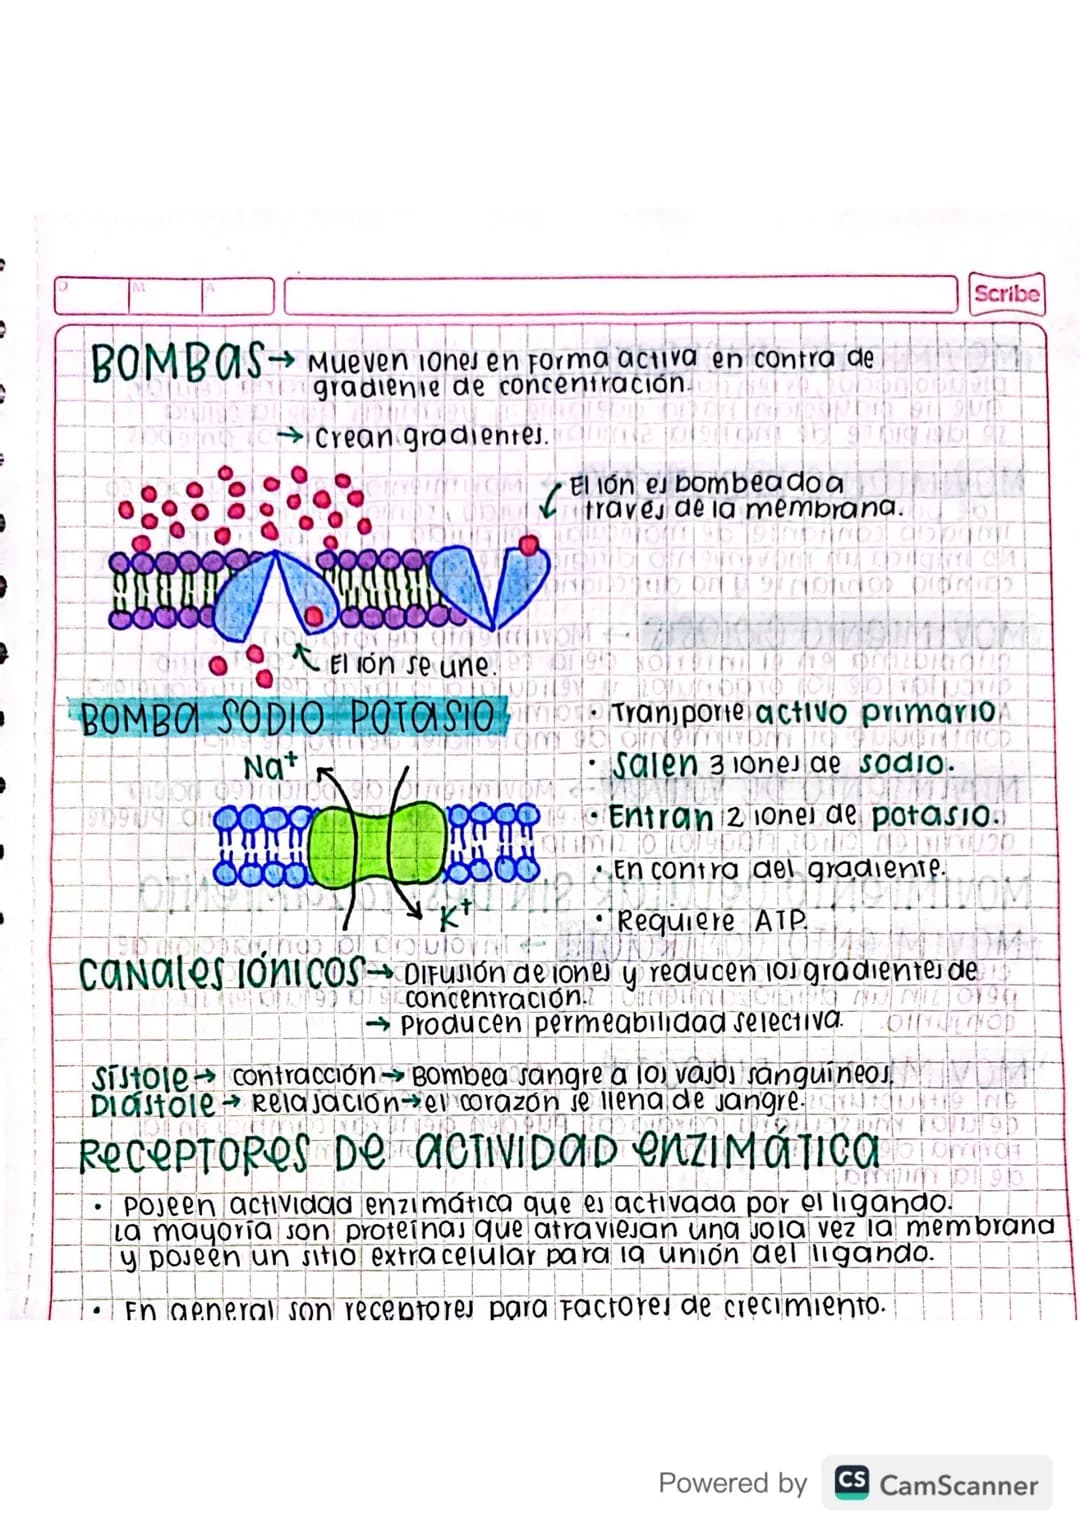 D M A
Scribe
BOMBAS → Mueven iones en forma activa en contra de
gradiente de concentración.
→ Crean gradientes.
El ión es bombeado a
través de la membrana.
El ión se une.
BOMBA SODIO POTASIO
· Transporte activo primario
Na+
· Salen 3 iones de sodio.
· Entran 2 iones de potasio.
· En contra del gradiente.
K+
· Requiere ATP.
CANALES IÓNICOS → Difusión de iones y reducen los gradientes de
concentración.
→ Producen permeabilidad selectiva.
Sístole → contracción → Bombea sangre a los vasos sanguíneos.
Diástole → Relajación → el corazón se llena de sangre.
RECEPTORES DE ACTIVIDAD ENZIMÁTICA
· Poseen actividad enzimática que es activada por el ligando.
La mayoría son proteínas que atraviesan una sola vez la membrana
y poseen un sitio extracelular para la unión del ligando.
· En general son receptores para factores de crecimiento.
Powered by CS CamScanner